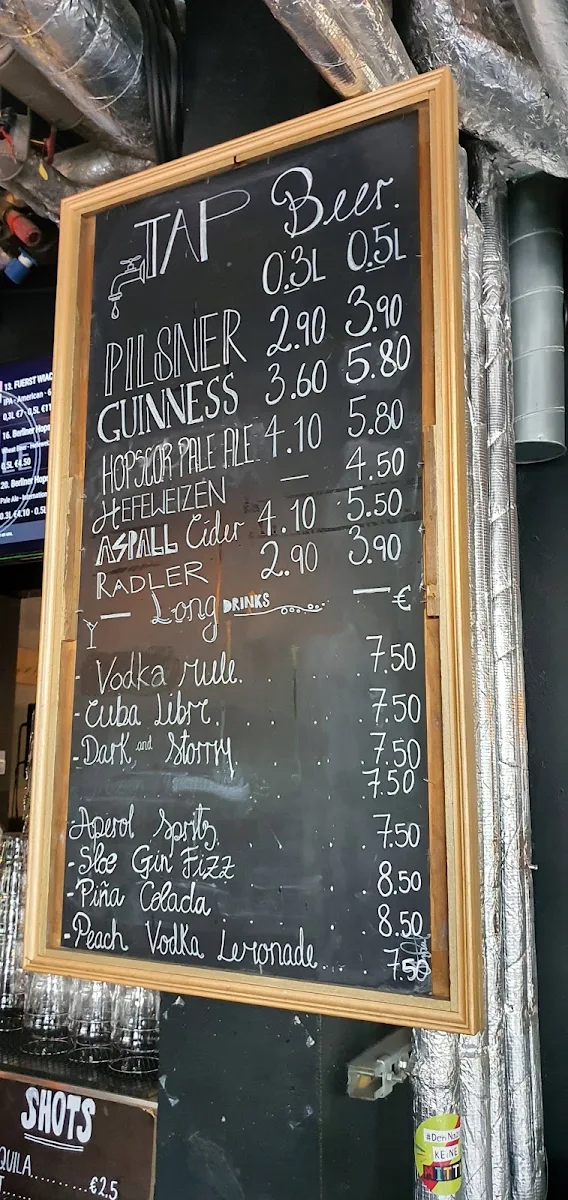 TAP Beer.
0.3L 0.5L
PILSNER 2.90 3.90
GUINNESS 3.60 5.80
HOPSCOR PALE ALE 4.10 5.80
HEFEWEIZEN — 4.50
ASPALL Cider 4.10 5.50
RADLER 2.90 3.90
Long DRINKS €
- Vodka Mule. 7.50
- Cuba Libre. 7.50
- Dark and Storrry. 7.50
7.50
Aperol Spritz. 7.50
- Sloe Gin Fizz 8.50
- Piña Colada 8.50
- Peach Vodka Lemonade. 7.50
13. FUERST WIAC
IPA - American - 6
0,3L €7 - 0,5L €11
16. Berliner Hops
0,5L €4.50
20. Berliner Hops
0.3L €4.10 - 0.5L
SHOTS
QUILA €2.5
KEINE